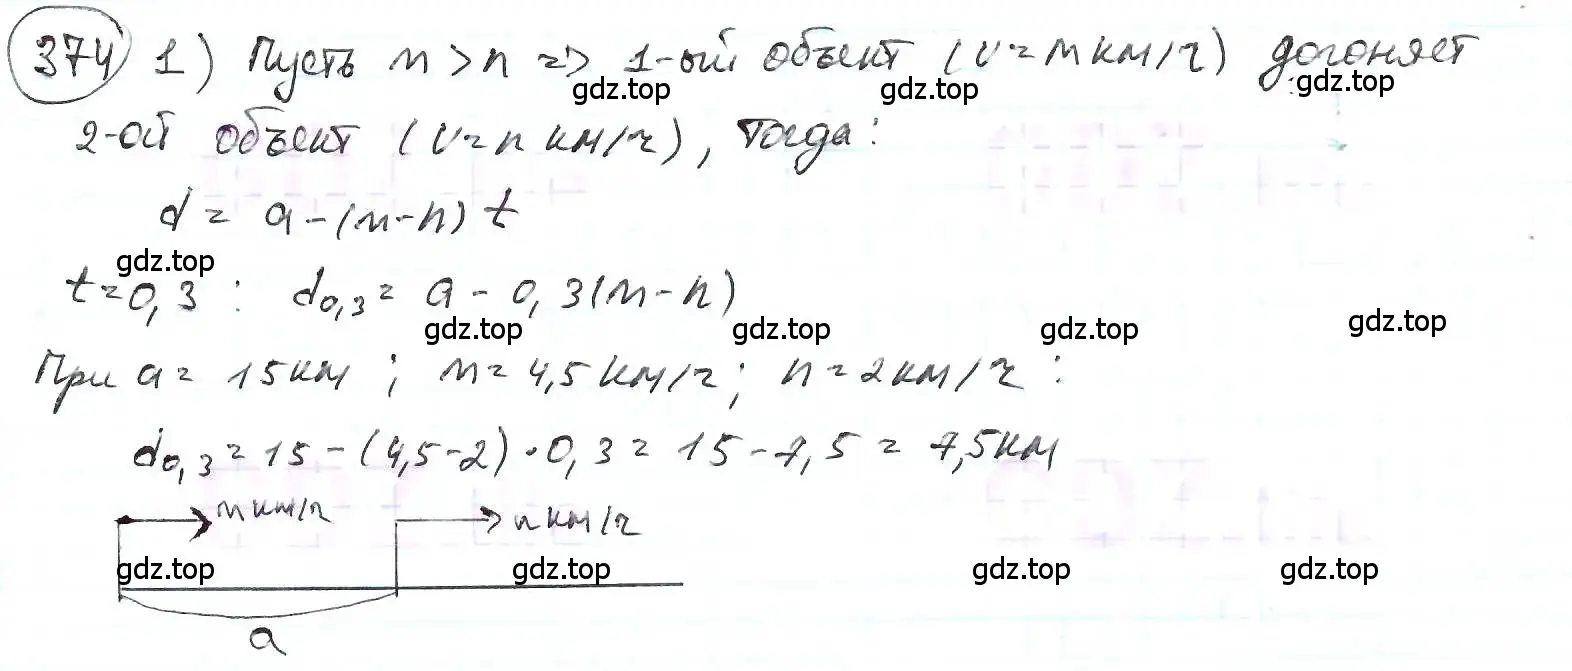 374 1) Пусть m > n => 1-ый объект (v = m км/ч) догоняет
gdz.top gdz.top gdz.top
2-ой объект (v = n км/ч), тогда:
d = a - (m - n) t
gdz.top
t = 0,3 : d0,3 = a - 0,3(m - n)
gdz.top gdz.top gdz.top gdz.top
При a = 15 км ; m = 4,5 км/ч ; n = 2 км/ч :
d0,3 = 15 - (4,5 - 2) · 0,3 = 15 - 7,5 = 7,5 км
m км/ч n км/ч
gdz.top gdz.top gdz.top gdz.top
a